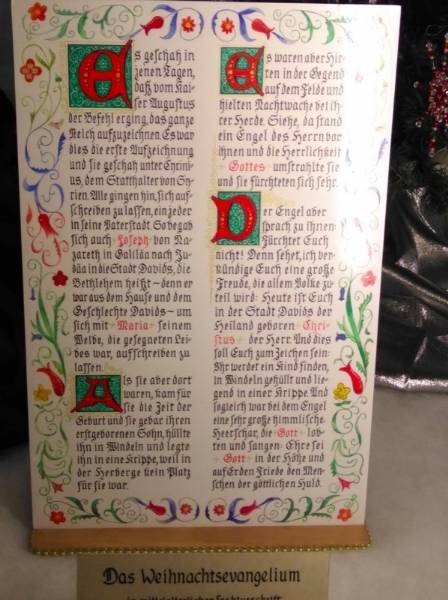 Es geschah in
jenen Tagen,
daß vom Kai-
ser Augustus
der Befehl erging, das ganze
Reich aufzuzeichnen. Es war
dies die erste Aufzeichnung
und sie geschah unter Cyrini-
us, dem Statthalter von Sy-
rien. Alle gingen hin, sich auf-
schreiben zu lassen, ein jeder
in seine Vaterstadt. So begab
sich auch Joseph von Na-
zareth in Galiläa nach Ju-
däa in die Stadt Davids, die
Bethlehem heißt – denn er
war aus dem Hause und dem
Geschlechte Davids – um
sich mit Maria seinem
Weibe, die gesegneten Lei-
bes war, aufschreiben zu
lassen.
Als sie aber dort
waren, kam für
sie die Zeit der
Geburt und sie gebar ihren
erstgeborenen Sohn, hüllte
ihn in Windeln und legte
ihn in eine Krippe, weil in
der Herberge kein Platz
für sie war.
Es waren aber Hir-
ten in der Gegend
auf dem Felde und
hielten Nachtwache bei ih-
rer Herde. Siehe, da stand
ein Engel des Herrn vor
ihnen und die Herrlichkeit
Gottes umstrahlte sie
und sie fürchteten sich sehr.
Der Engel aber
sprach zu ihnen:
Fürchtet Euch
nicht! Denn sehet, ich ver-
kündige Euch eine große
Freude, die allem Volke zu-
teil wird: Heute ist Euch
in der Stadt Davids der
Heiland geboren Chri-
stus der Herr. Und dies
soll Euch zum Zeichen sein:
Ihr werdet ein Kind finden,
in Windeln gehüllt und lie-
gend in einer Krippe. Und
sogleich war bei dem Engel
eine sehr große himmlische
Heerschar, die Gott lob-
ten und sangen: Ehre sei
Gott in der Höhe und
auf Erden Friede den Men-
schen der göttlichen Huld.
Das Weihnachtsevangelium
in mittelalterlicher Frakturschrift